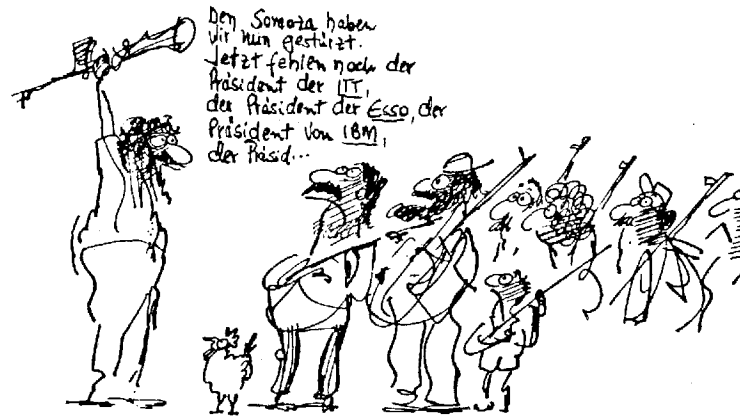 Den Somoza haben
wir nun gestürzt.
Jetzt fehlen noch der
Präsident der ITT,
der Präsident der ESSO, der
Präsident von IBM,
der Präsid...